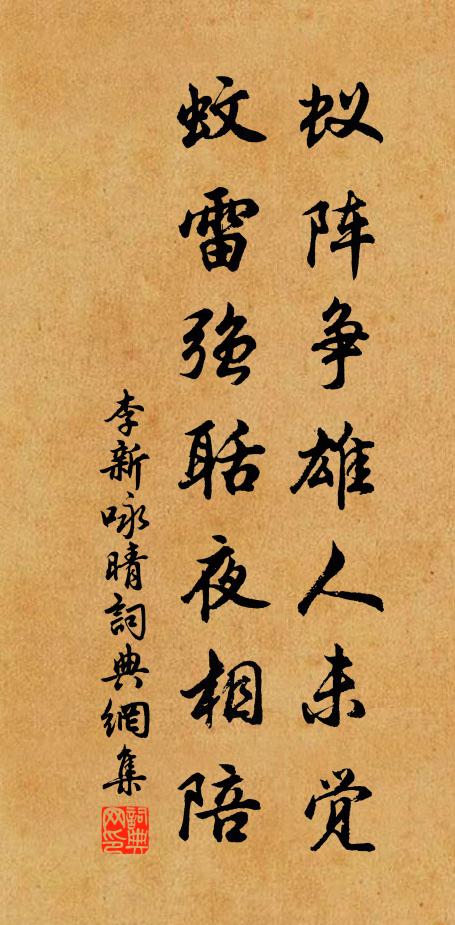 蚁阵争雄人未觉
蚊雷强聒夜相陪
李新咏晴詞典網集
詞典网印